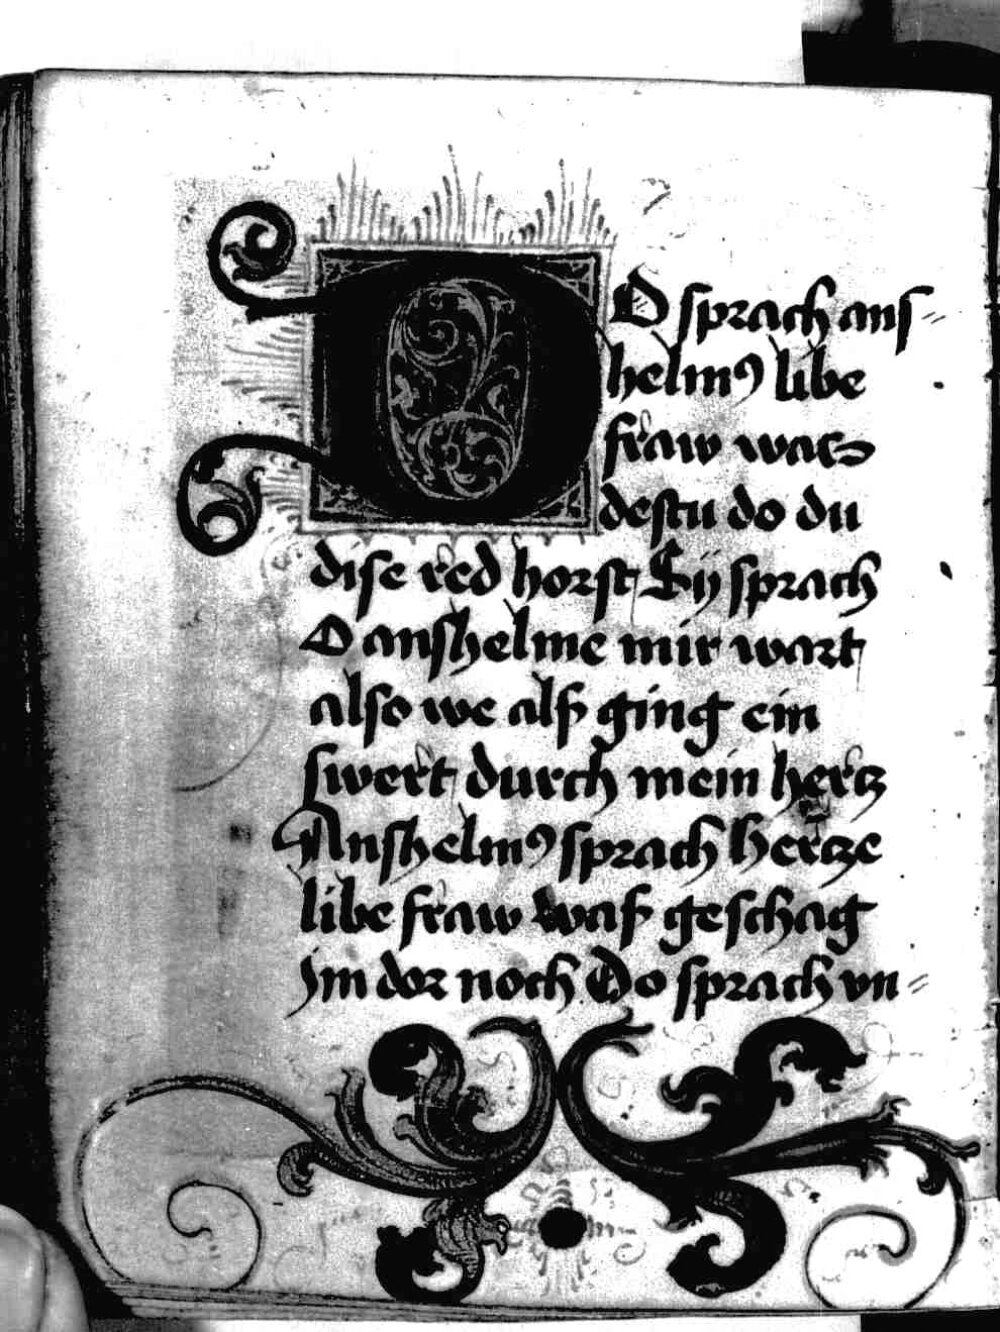 DO sprach ans⸗
helmꝰ libe
fraw was
destu do du
dise red horst Sij sprach
O anshelme mir wart
also we alß ging ein
swert durch mein hertz
Anshelmꝰ sprach hertze
libe fraw waß geschag
Im dor noch Do sprach vn⸗